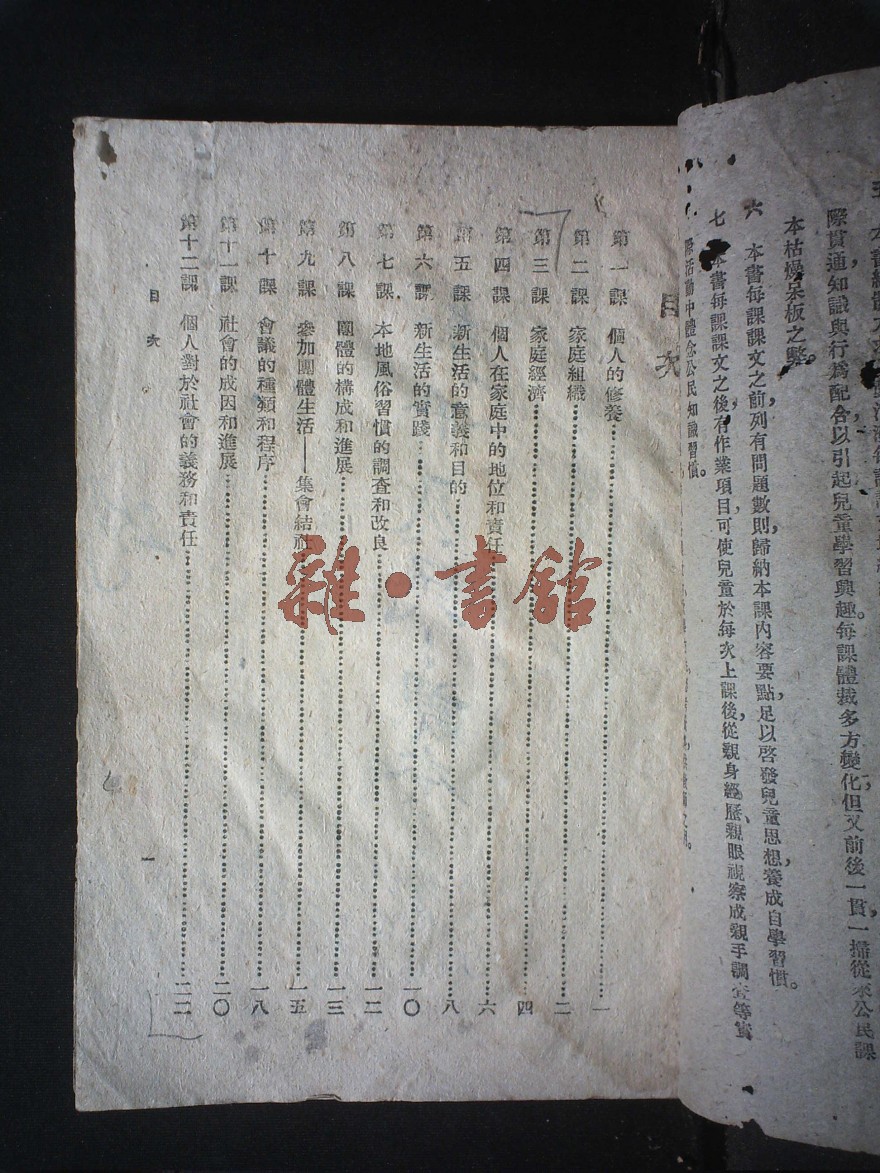 際貫通，知識與行爲配合以引起兒童學習興趣。每課體裁多方變化，但又前後一貫，一掃從來公民課
本枯燥呆板之弊。
六　本書每課課文之前，列有問題數則，歸納本課內容要點，足以啓發兒童思想，養成自學習慣。
七　本書每課課文之後，有作業項目，可使兒童於每次上課後，從親身經歷、親眼視察或親手調查等實
際活動中體念公民知識習慣。
目次
第一課　個人的修養……一
第二課　家庭組織……二
第三課　家庭經濟……四
第四課　個人在家庭中的地位和責任……六
第五課　新生活的意義和目的……八
第六課　新生活的實踐……一〇
第七課　本地風俗習慣的調查和改良……一二
第八課　團體的構成和進展……一三
第九課　參加團體生活——集會結社……一五
第十課　會議的種類和程序……一八
第十一課　社會的成因和進展……二〇
第十二課　個人對於社會的義務和責任……二二
目次
一
雜·書館